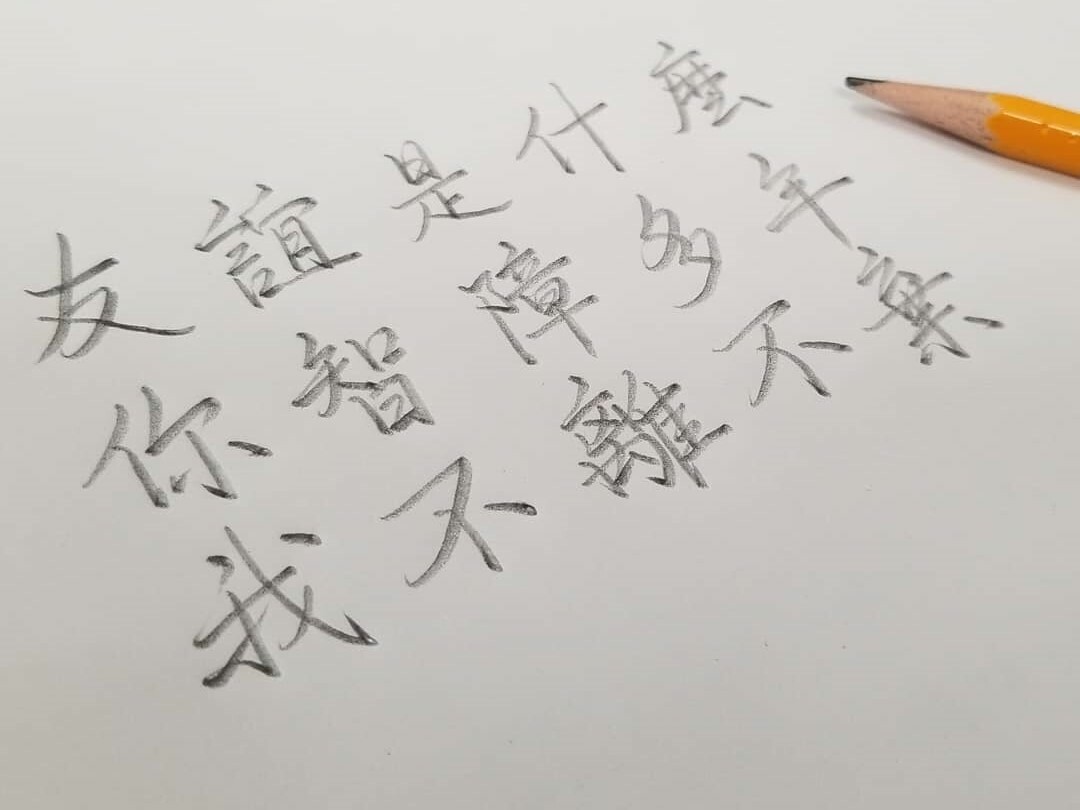 友誼是什麼
你智障多年
我不離不棄